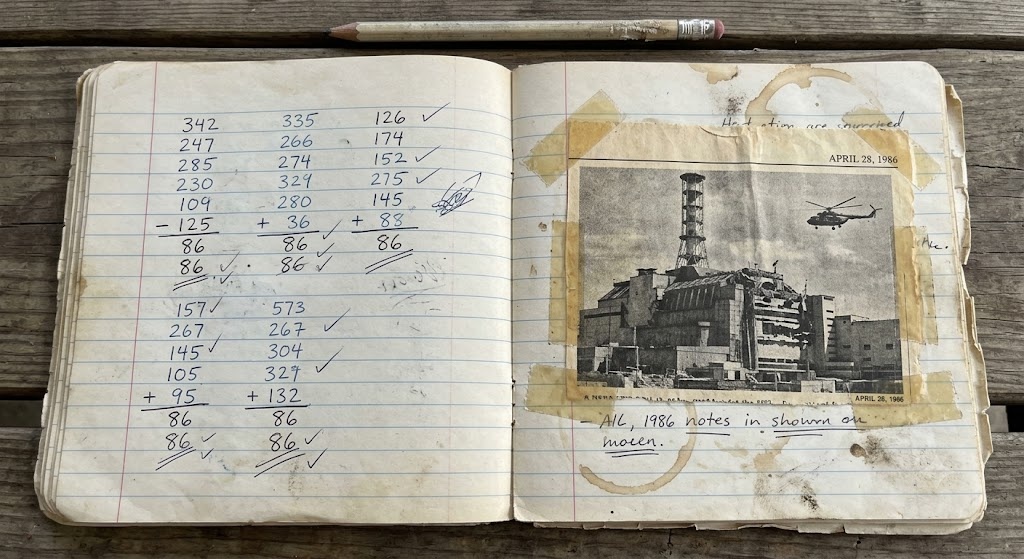 342 335 126 ✓
247 266 174
285 274 152 ✓
230 329 275 ✓
109 280 145
- 125 + 36 ✓ + 88
86 86 ✓ 86
86 ✓ 86 ✓
157 ✓ 573
267 267 ✓
145 ✓ 304
105 327 ✓
+ 95 + 132
86 86
86 ✓ 86 ✓
are
APRIL 28, 1986
APRIL 26, 1986
1986 notes in shown on